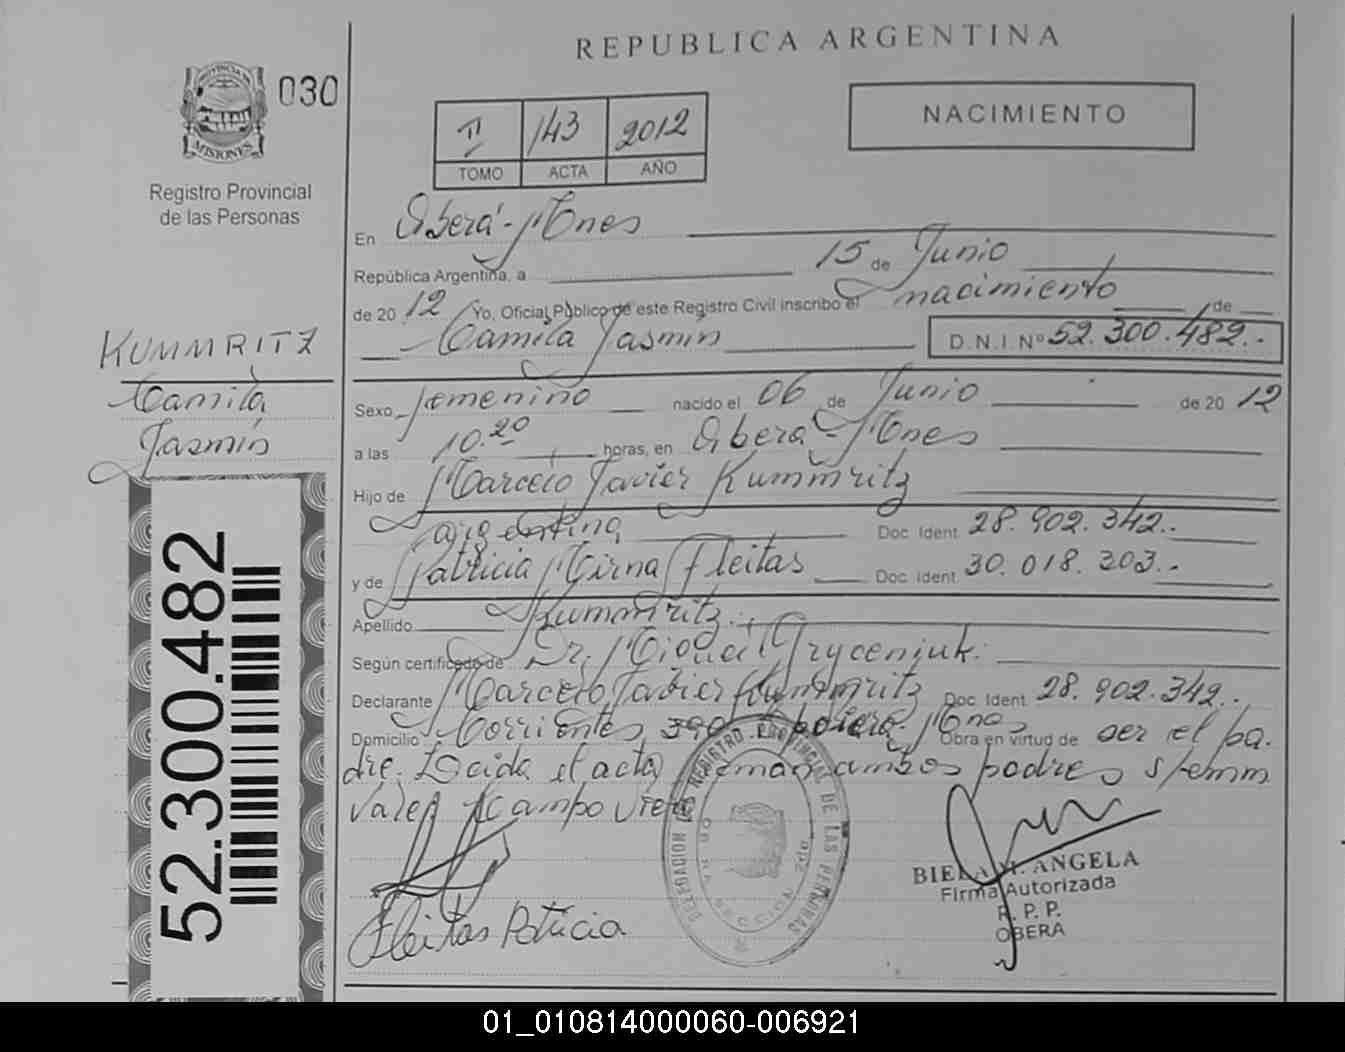 REPUBLICA ARGENTINA
030
PROVINCIA DE MISIONES
Registro Provincial
de las Personas
II 143 2012
TOMO ACTA AÑO
NACIMIENTO
En Oberá - Mnes
República Argentina, a 15 de Junio
de 20 12 Yo, Oficial Público de este Registro Civil inscribo el nacimiento de
Camila Jasmín D.N.I Nº 52.300.482.-
KUMMRITZ
Camila
Jasmín
52.300.482
Sexo Femenino nacido el 06 de Junio de 20 12
a las 10.20 horas, en Oberá - Mnes
Hijo de Marcelo Javier Kummritz
argentina Doc Ident 28.902.342..
y de Patricia Mirna Fleitas Doc Ident 30.018.303.-
Apellido Kummritz.
Según certificado de Dr.
Declarante Marcelo Javier Kummritz Doc Ident 28.902.342..
Domicilio Corrientes 390 Mnes Obra en virtud de ser el pa-
dre. Leida el acta firman ambos padres s/enm
Vale: Campo Viera
Fleitas Patricia
DELEGACION DEL REGISTRO PROVINCIAL DE LAS PERSONAS
OBERA SECCION 2da
BIELA M. ANGELA
Firma Autorizada
R. P. P.
OBERA
01_010814000060-006921